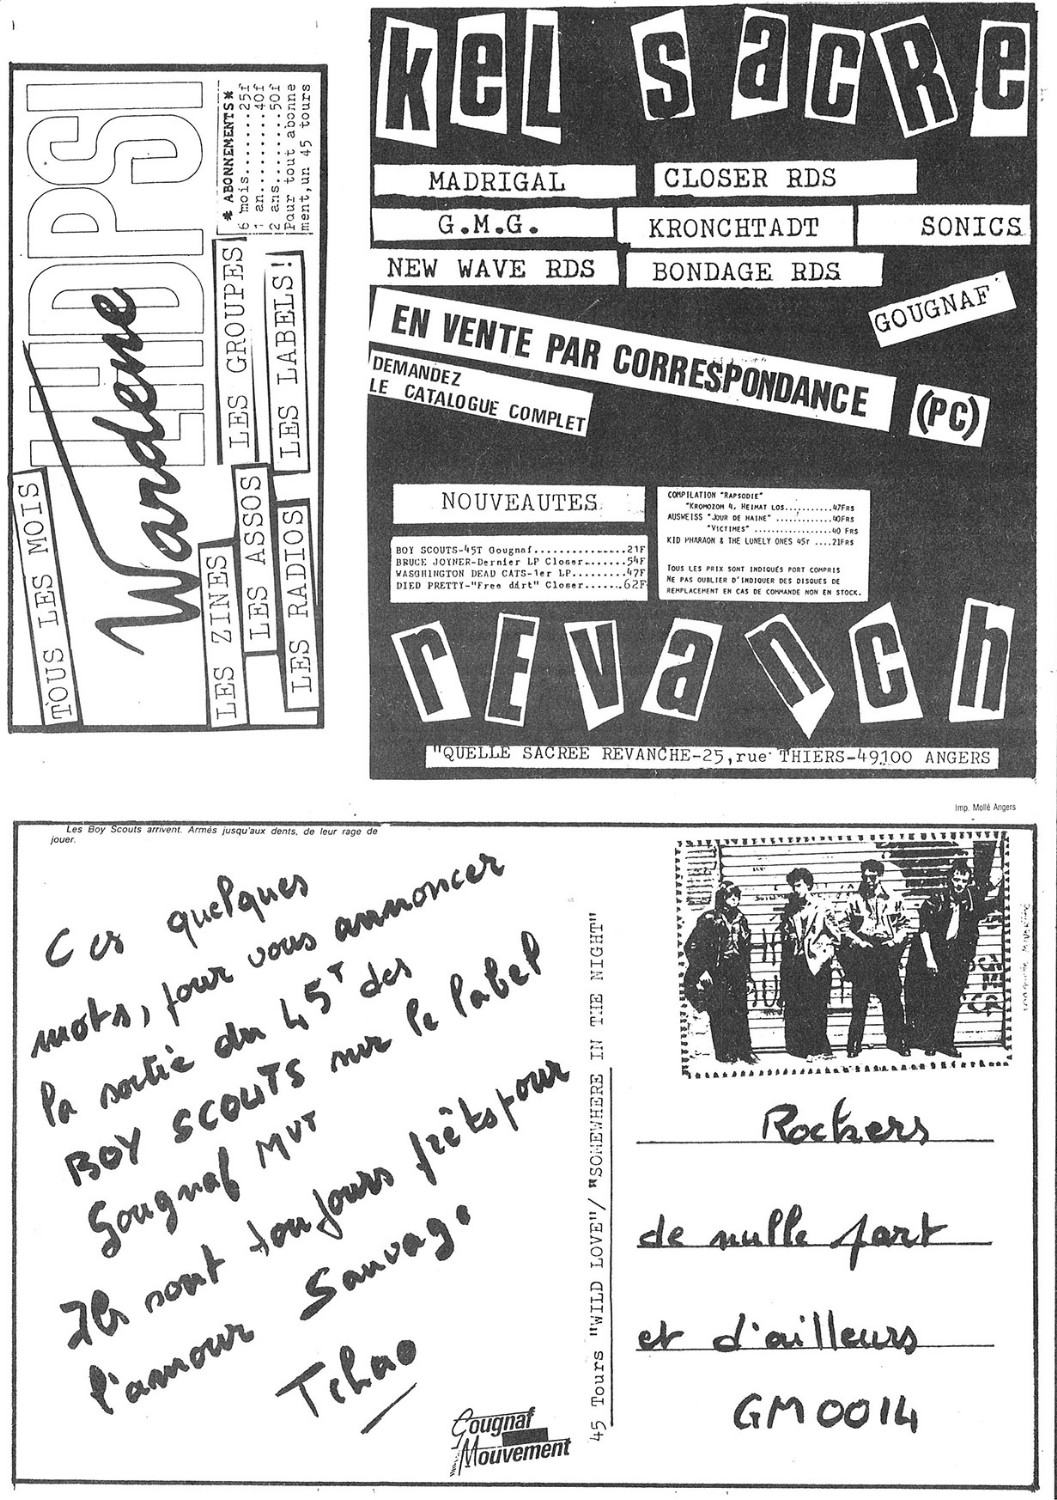 LUDPSI
Wardene
* ABONNEMENTS *
6 mois.......25f
1 an.........40f
2 ans........50f
Pour tout abonne
ment,un 45 tours
TOUS LES MOIS
LES ZINES
LES GROUPES
LES ASSOS
LES LABELS!
LES RADIOS
kel sacRe
MADRIGAL
CLOSER RDS
G.M.G.
KRONCHTADT
SONICS
NEW WAVE RDS
BONDAGE RDS
GOUGNAF
EN VENTE PAR CORRESPONDANCE (PC)
DEMANDEZ
LE CATALOGUE COMPLET
NOUVEAUTES
BOY SCOUTS-45T Gougnaf...............21F
BRUCE JOYNER-Dernier LP Closer.......54F
WASGHINGTON DEAD CATS-1er LP.........47F
DIED PRETTY-"Free dirt" Closer.......62F
COMPILATION "RAPSODIE"
"KROMOZOM 4, HEIMAT LOS..........47FRS
AUSWEISS "JOUR DE HAINE" ............40FRS
"VICTIMES" ................40 FRS
KID PHARAON & THE LONELY ONES 45T ....21FRS
TOUS LES PRIX SONT INDIQUÉS PORT COMPRIS
NE PAS OUBLIER D'INDIQUER DES DISQUES DE
REMPLACEMENT EN CAS DE COMMANDE NON EN STOCK.
rEVanch
"QUELLE SACREE REVANCHE-25,rue THIERS-49100 ANGERS
Imp. Mollé Angers
Les Boy Scouts arrivent. Armés jusqu'aux dents, de leur rage de
jouer.
Ces quelques
mots, pour vous annoncer
la sortie du 45T des
BOY SCOUTS sur le label
Gougnaf MVT
Ils sont toujours prêts pour
l'amour Sauvage
Tchao
Gougnaf
Mouvement
45 Tours "WILD LOVE"/ "SOMEWHERE IN THE NIGHT"
Rockers
de nulle part
et d'ailleurs
GM 0014